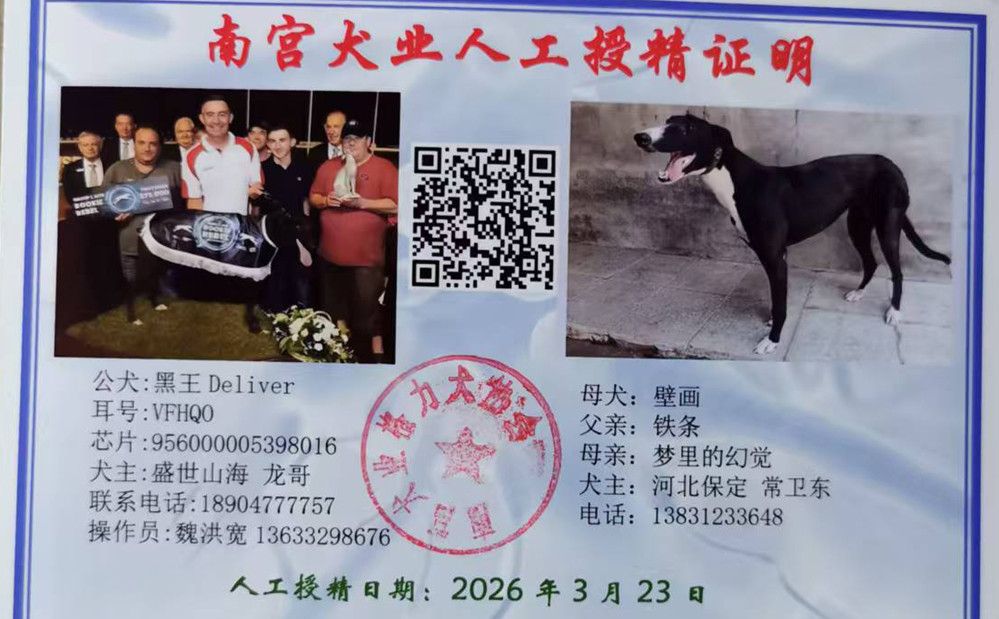 南宫犬业人工授精证明
ROOKIE
REBEL
$75,000
ROOKIE
REBEL
公犬:黑王Deliver
耳号:VFHQO
芯片:956000005398016
犬主:盛世山海 龙哥
联系电话:18904777757
操作员:魏洪宽 13633298676
母犬：壁画
父亲：铁条
母亲：梦里的幻觉
犬主：河北保定 常卫东
电话：13831233648
人工授精日期：2026年3月23日